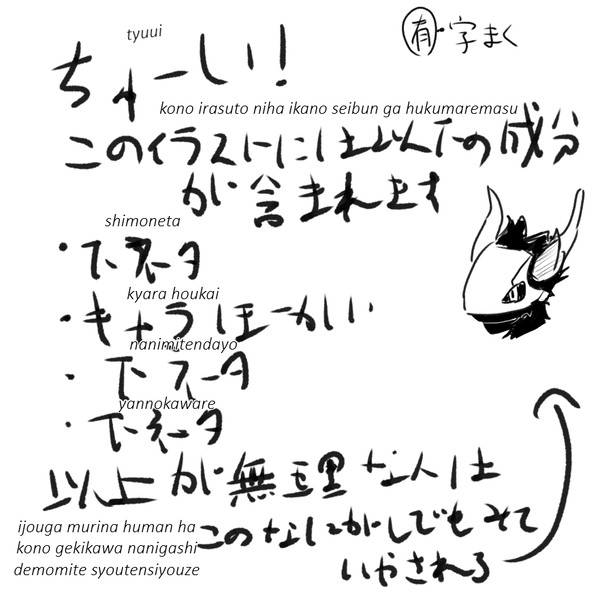 有・字まく
tyuui
ちゅーい!
kono irasuto niha ikano seibun ga hukumaremasu
このイラストには以下の成分
が含まれます
shimoneta
・下ネタ
kyara houkai
・キャラほーかい
nanimitendayo
・下ネタ
yannokaware
・下ネタ
以上が無理な人は
ijouga murina human ha
このなにかしでもみて
kono gekikawa nanigashi
いやされろ
demomite syoutensiyouze